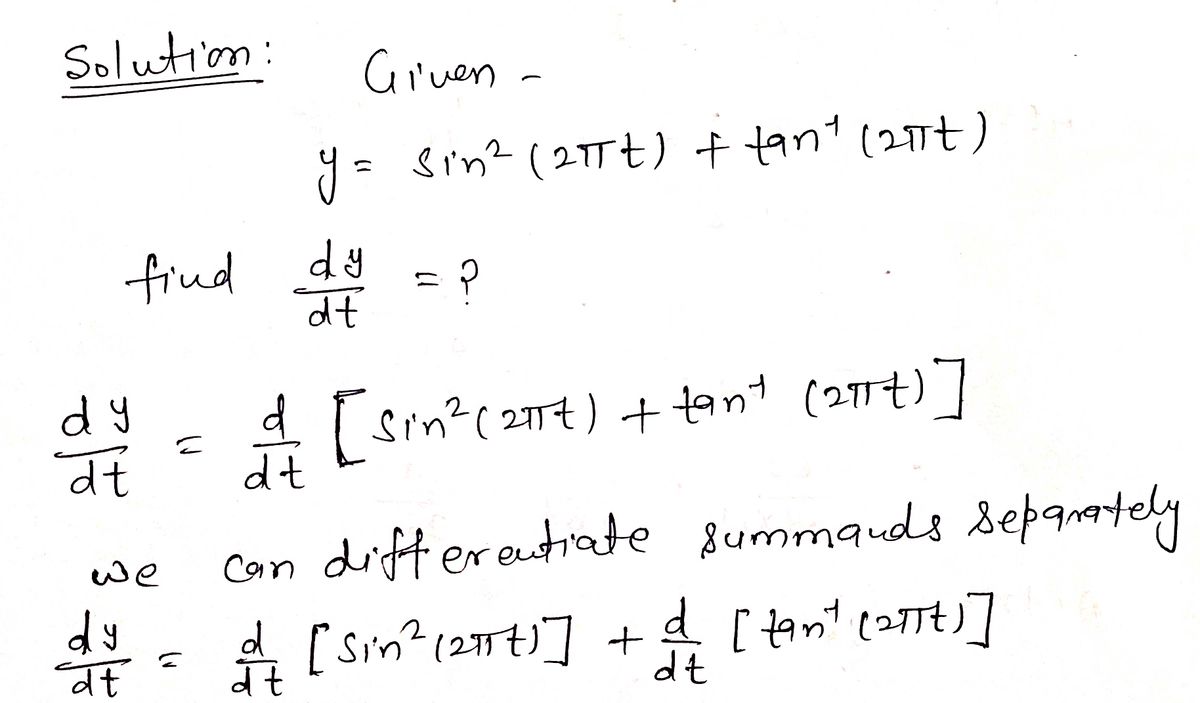 Solution: Given -
y = sin² (2πt) + tan⁻¹ (2πt)
find dy/dt = ?
dy/dt = d/dt [sin²(2πt) + tan⁻¹ (2πt)]
we can differentiate summands separately
dy/dt = d/dt [sin²(2πt)] + d/dt [tan⁻¹(2πt)]